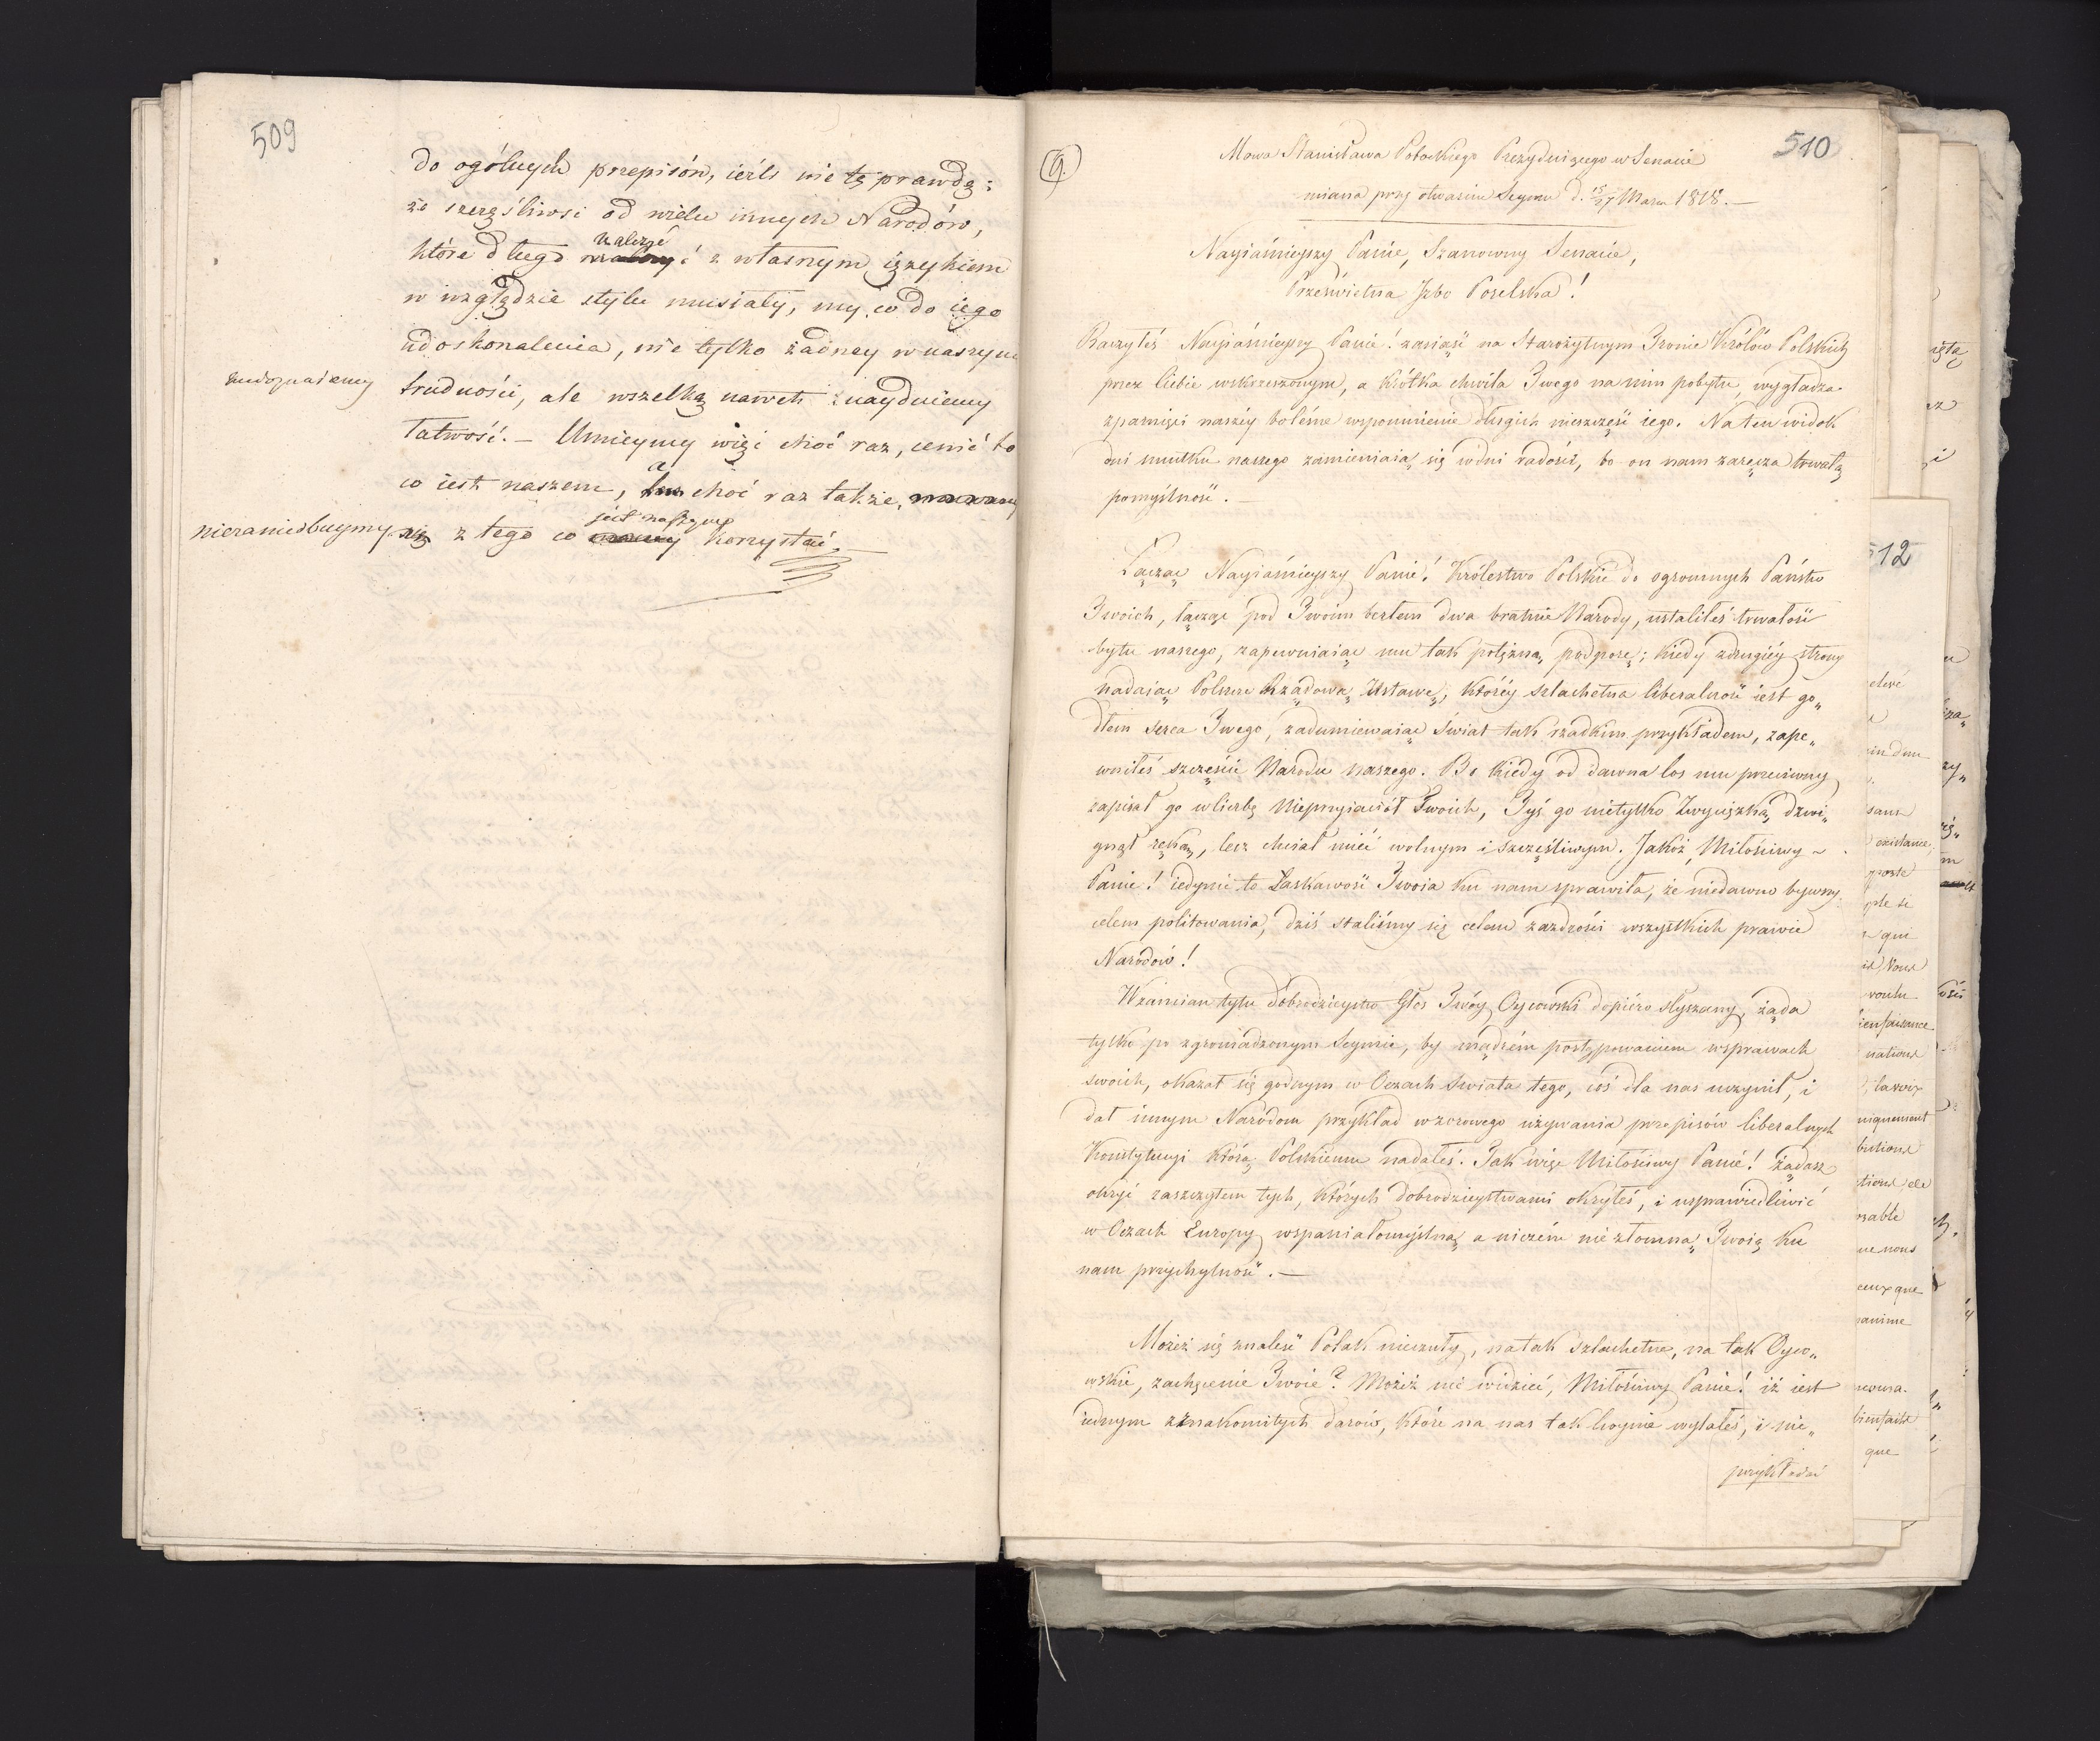 509
do ogólnych przepisów, ieźli nie tę prawdę;
że szczęśliwsi od wielu innych Narodów,
walczyć
które długo z własnym ięzykiem
w względzie stylu musiały, my co do iego
udoskonalenia, nie tylko żadney w naszym
trudności, ale wszelką nawet znaydniemy
łatwość. – Umieymy więc choć raz, cenić to
a
co iest naszem, choć raz także,
jest naszym
niezaniedbuymy z tego co korzystać. –
9.
510
Mowa Stanisława Potockiego Prezyduiącego w Senacie
miana przy otwarciu Seymu d. 15/27 Marca 1818. –
Nayiaśnieyszy Panie, Szanowny Senacie,
Prześwietna Izbo Poselska!
Raczyłeś Nayiaśnieyszy Panie! zasiąść na Starożytnym Tronie Królów Polskich
przez Ciebie wskrzeszonym, a krótka chwila Twego na nim pobytu, wygładza
z pamięci naszéy bolesne wspomnienie długich nieszczęść iego. Na ten widok
dni smutku naszego zamieniaią się w dni radości, bo on nam zaręcza trwałą
pomyślność. –
Łącząc Nayiaśnieyszy Panie! Królestwo Polskie do ogromnych Państw
Twoich, łącząc pod Twoim berłem dwa bratnie Narody, ustaliłeś trwałość
bytu naszego, zapewniaiąc mu tak potężną podporę; kiedy z drugiéy strony
nadaiąc Polszcze Rządową Ustawę, któréy szlachetna liberalność iest go„
dłem serca Twego, zadumiewaiąc świat tak rzadkim przykładem, zape„
wniłeś szczęście Narodu naszego. Bo kiedy od dawna los mu przeciwny
zapisał go w liczbę Nieprzyiaciół Twoich, Tyś go nietylko Zwycięzką dźwi„
gnął ręką, lecz chciał mieć wolnym i szczęśliwym. Jakoż, Miłościwy –
Panie! iedynie to Łaskawość Twoia ku nam sprawiła, że niedawno bywszy
celem politowania, dziś staliśmy się celem zazdrości wszystkich prawie
Narodów!
Wzamian tylu dobrodzieystw Głos Twóy Oycowski dopiéro słyszany, żąda
tylko po zgromadzonym Seymie, by mądrém postępowaniem w sprawach
swoich, okazał się godnym w Oczach świata tego, coś dla nas uczynił, i
dał innym Narodom przykład wzorowego używania przepisów liberalnych
Konstytucyi którą Polskiemu nadałeś. Tak więc Miłościwy Panie! żądasz
okryć zaszczytem tych, których dobrodzieystwami okryłeś, i usprawiedliwić
w Oczach Europy wspaniałomyślną a niczém niezłomną Twoię ku
nam przychylność. –
Możeż się znaleść Polak nieczuły, na tak szlachetne, na tak Oyco„
wskie, zachęcenie Twoie? Możeż nie widzieć, Miłościwy Panie! iż iest
iednym z znakomitych darów, które na nas tak hoynie wylałeś, i nie„
przykładać
512